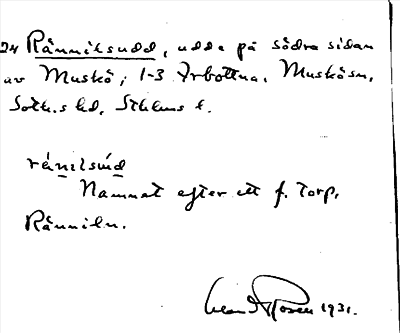 24 Rånniksudd, udde på södra sidan
av Muskö; 1-3 Arbottna, Muskösn,
Soth.s hd, Sthlms l.
Namnet efter ett f. torp,
Rånniken.
Rosen 1931.